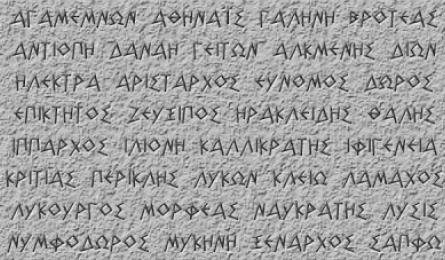 ΑΓΑΜΕΜΝΩΝ ΑΘΗΝΑΪΣ ΓΑΛΗΝΗ ΒΡΟΤΕΑΣ
ΑΝΤΙΟΠΗ ΔΑΝΑΗ ΓΕΙΤΩΝ ΑΛΚΜΕΝΗΣ ΔΙΩΝ
ΗΛΕΚΤΡΑ ΑΡΙΣΤΑΡΧΟΣ ΕΥΝΟΜΟΣ ΔΩΡΟΣ
ΕΠΙΚΤΗΤΟΣ ΖΕΥΞΙΠΟΣ ἩΡΑΚΛΕΙΔΗΣ ΘΑΛΗΣ
ΙΠΠΑΡΧΟΣ ΙΛΙΟΝΗ ΚΑΛΛΙΚΡΑΤΗΣ ΙΦΙΓΕΝΕΙΑ
ΚΡΙΤΙΑΣ ΠΕΡΙΚΛΗΣ ΛΥΚΩΝ ΚΛΕΙΩ ΛΑΜΑΧΟΣ
ΛΥΚΟΥΡΓΟΣ ΜΟΡΦΕΑΣ ΝΑΥΚΡΑΤΗΣ ΛΥΣΙΣ
ΝΥΜΦΟΔΩΡΟΣ ΜΥΚΗΝΗ ΞΕΝΑΡΧΟΣ ΣΑΠΦΩ